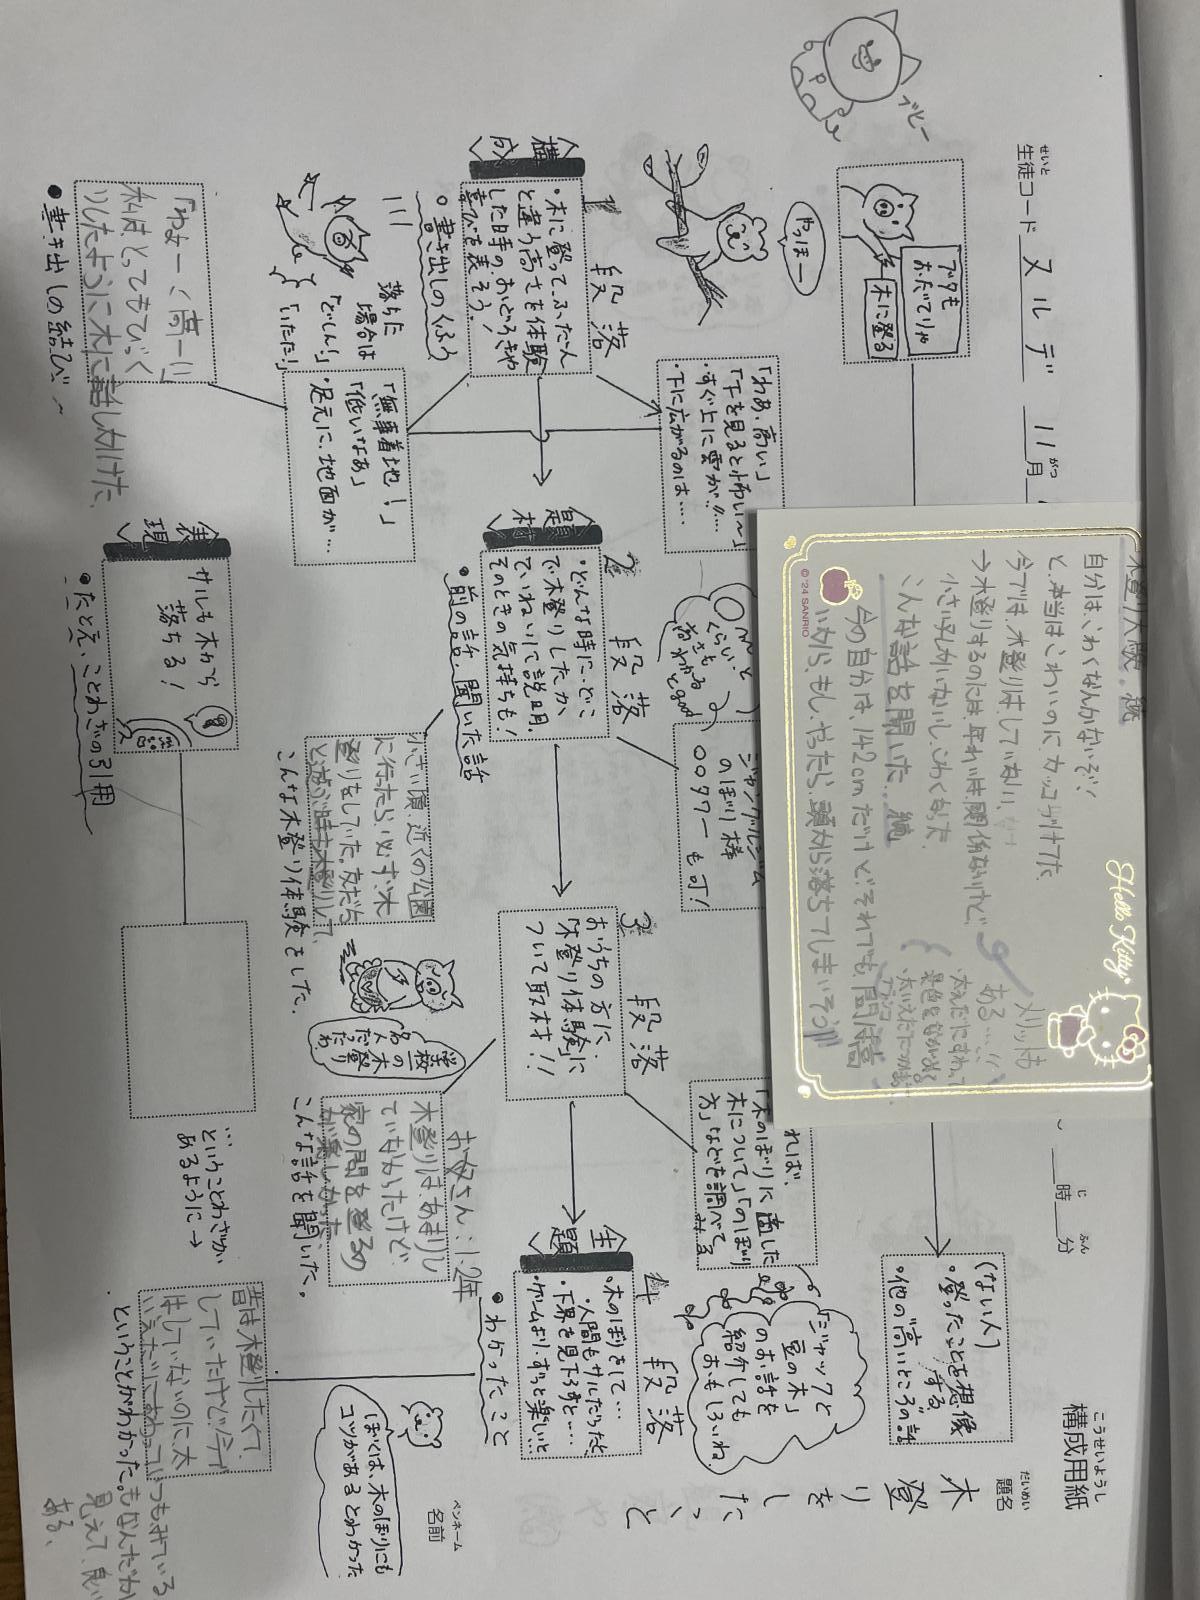 構成用紙
こうせいようし
題名
だいめい
木登りをしたこと
名前
ペンネーム
生徒コード ヌルデ 11月
せいと
がつ
時 分
じ ふん
ブヒー
ブタも
おだてりゃ
木に登る
やっほー
(ない人)
・登ったことを想像する
・他の"高いところ"の話
構成
1段落
・木に登って、ふだん
と違う高さを体験
した時の、おどろきや
喜びを表そう!
書き出しのくふう
「わあ、高い」
「下を見ると怖い〜」
・すぐ上に雲が!!…
・下に広がるのは…
落ちた
場合は
「どしん!」
「いたた!」
「無事着地!」
「低いなあ」
・足元に地面が…
「わぁー、高ーい」
私はとってもびっく
りしたように木に話しかけた。
●書き出しの結び
題材
2段落
・どんな時に、どこ
で木登りしたか
ていねいに説明。
そのときの気持ちも!
●前の話、聞いた話
くらい
高さも
わかると
good
ジャングルジム
のぼり棒
も可!
小さい頃、近くの公園
に行ったら、必ず、木
登りをしていた。友だち
と遊ぶ時も木登りして、
こんな木登り体験をした。
表現
サルも木から
落ちる!
●たとえ、ことわざの引用
…ということわざが
あるように→
3段落
おうちの方に、
「木登り体験」に
ついて取材!!
学校一の木
登り
名人だったわ
れば、
「木のぼりに適した
木について」「のぼり
方」などを調べてみる
お母さん:1.2年
木登りは、あまりし
ていなかったけど
家の間を登るの
が楽しかった
こんな話を聞いた。
主題
4段落
・木のぼりをして…
・人間もサルだったんだ
・下界を見下ろすと…
・ゲームより、ずっと楽しいと
●わかったこと
「ジャックと
豆の木」
のお話を
紹介しても
おもしろいね
ぼくは、木のぼりにも
コツがあるとわかった
昔は木登りしたくて、
していたけど、今で
はしていないのに太
いえだにすわって
いつもみている
ということがわかった。
見えて、良い
ある、
木登り大験。続
自分は、こわくなんかないぞ!
と、本当はこわいのにカッコつけてた
今では、木登りはしていない、
→木登りするのには年れいは関係ないけど、
小さい子しかいないし、こわくなった。
こんな話を聞いた。続
今の自分は、142cmだけど、それでも、
いから、もし、やったら頭から落ちてしまいそう!!
メリットも
ある…
・太えだにすわって
景色をながめる
・太いえだにつかまって
ブランコ
Hello Kitty
© '24 SANRIO